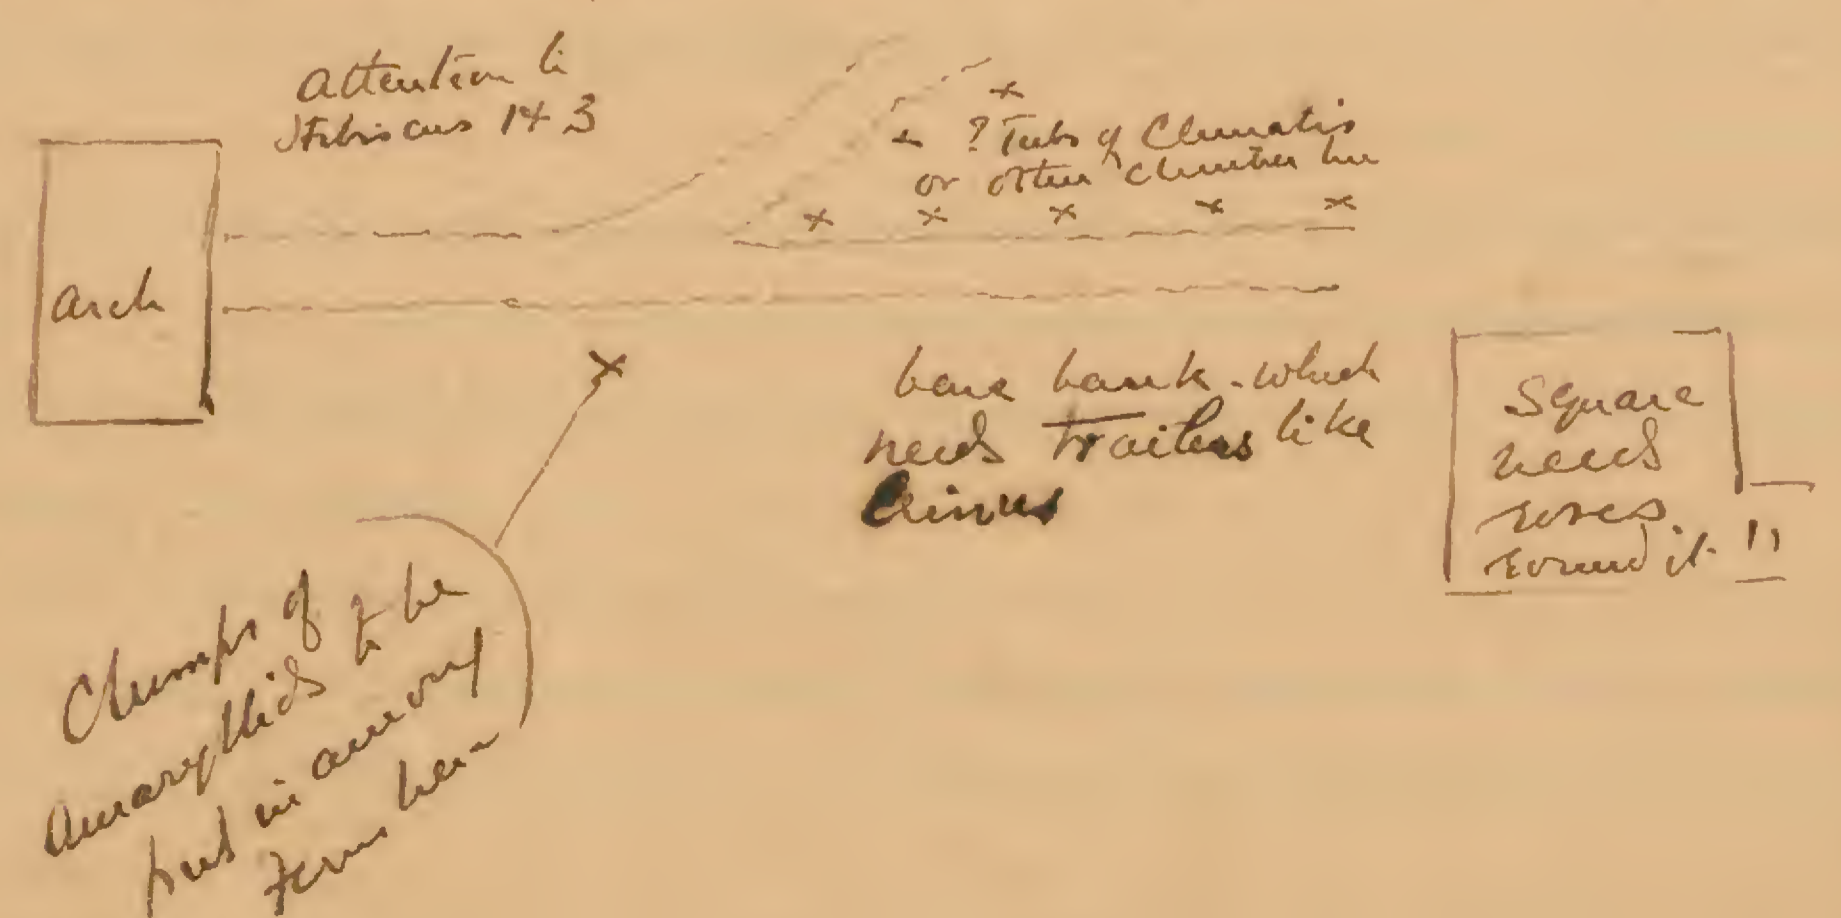 Attention to
Hibiscus 1 + 3
? Tubs of Clematis
or other climber here
Arch
bare bank - which
needs trailers like
Square
needs
roses
round it !!
Clumps of
amaryllids to be
put in among
Ferns here